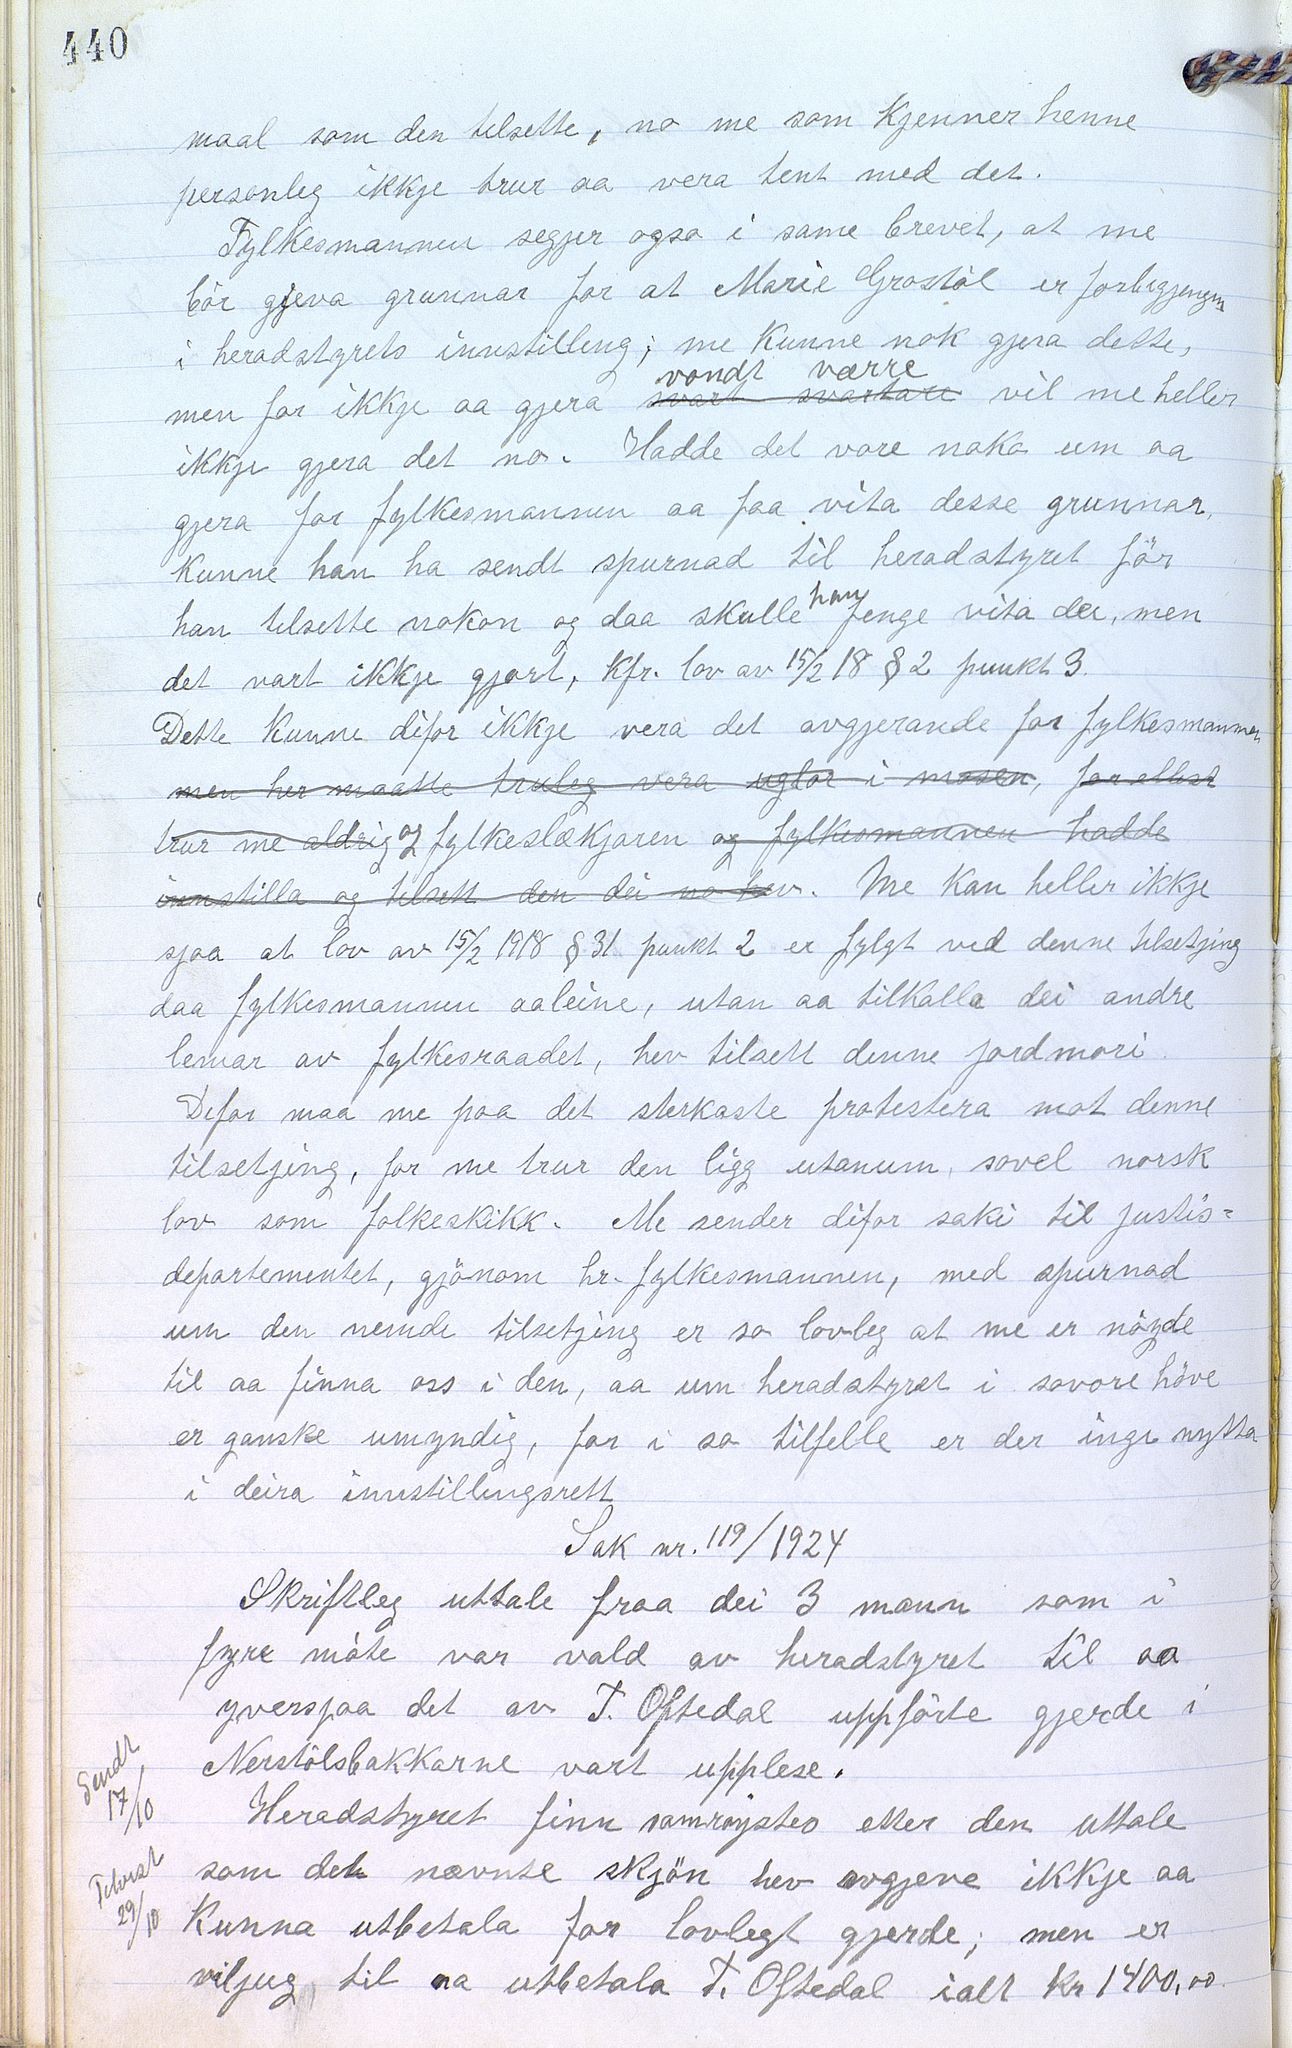 440
maal som den tilsette, no me som kjenner henne
personleg ikkje trur aa vera tent med det.
Fylkesmannen segjer ogso i same brevet, at me
bör gjeva grunnar for at Marie Grostöl er forbigjengen
i heradstyrets innstilling; me kunne nok gjera dette,
vondt værre
men for ikkje aa gjera svart svartare vil me heller
ikkje gjera det no. Hadde det vore noko um aa
gjera for fylkesmannen aa faa vita desse grunnar,
kunne han ha sendt spurnad til heradstyret för
han tilsette nokon og daa skulle han fenge vita dei, men
det vart ikkje gjort, kfr. lov av 15/2 18 § 2 punkt 3.
Dette kunne difor ikkje vera det avgjerande for fylkesmannen
men her maatte truleg vera uglor i mosen, for ellest
trur me aldrig og fylkeslækjaren og fylkesmannen hadde
innstilla og tilsett den dei no hev. Me kan heller ikkje
sjaa at lov av 15/2 1918 § 31 punkt 2 er fylgt ved denne tilsetjing
daa fylkesmannen aaleine, utan aa tilkalla dei andre
lemar av fylkesraadet, hev tilsett denne jordmori.
Difor maa me paa det sterkaste protestera mot denne
tilsetjing, for me trur den ligg utanum, sovel norsk
lov som folkeskikk. Me sender difor saki til justis=
departementet, gjönom hr. fylkesmannen, med spurnad
um den nemde tilsetjing er so lovleg at me er nöyde
til aa finna oss i den, aa um heradstyret i sovore höve
er ganske umyndig, for i so tilfelle er der ingi nytta
i deira innstillingsrett
Sak nr. 119/1924
Skriftleg uttale fraa dei 3 mann som i
fyre möte var vald av heradstyret til aa
yversjaa det av T. Oftedal uppförte gjerde i
Nerstölsbakkarne vart upplese.
Sendt
17/10
Heradstyret finn samröystes etter den uttale
som det nævnte skjön hev avgjeve ikkje aa
29/10
kunna utbetala for lovlegt gjerde; men er
viljug til aa utbetala T. Oftedal ialt kr 1400,00.